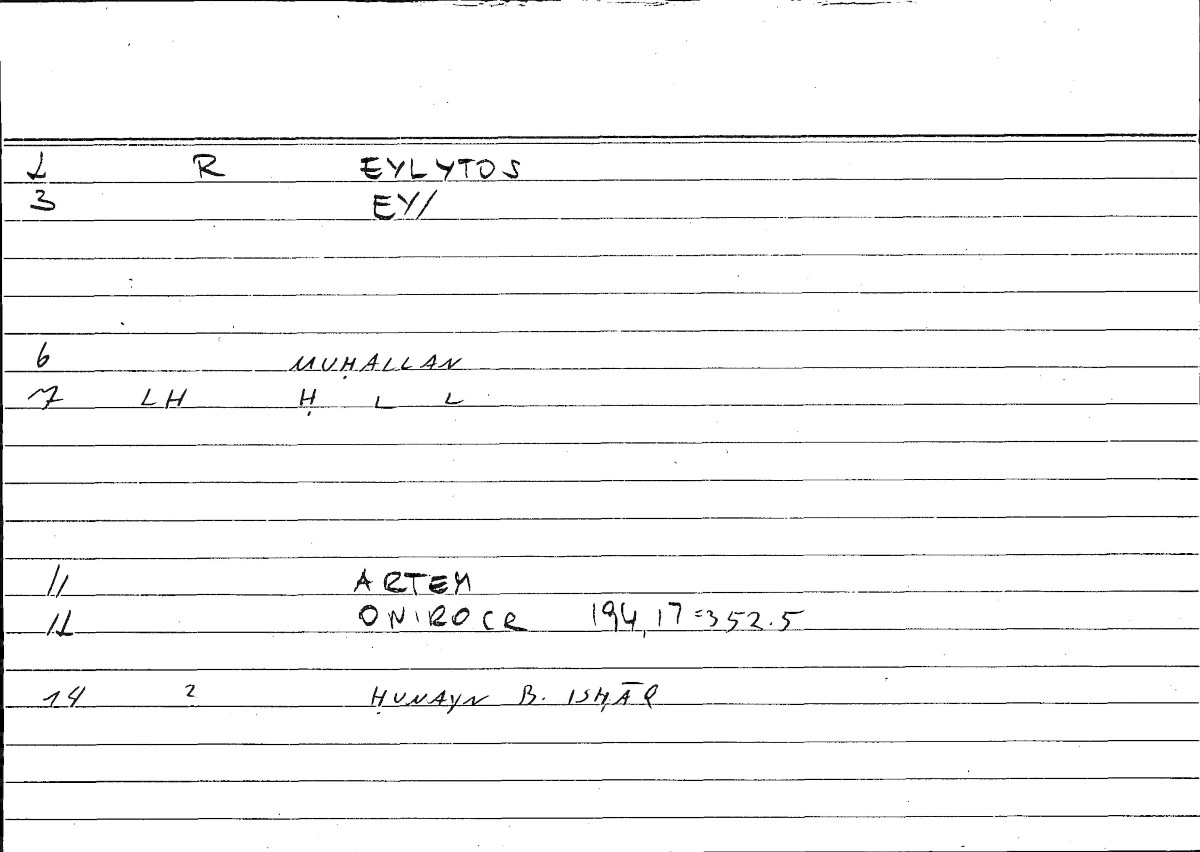 1 R EYLYTOS
3 EY/
6 MUḤALLAN
7 LH Ḥ L L
11 ARTEM
12 ONIROCR 194,17=352.5
14 2 ḤUNAYN B. ISḤĀQ